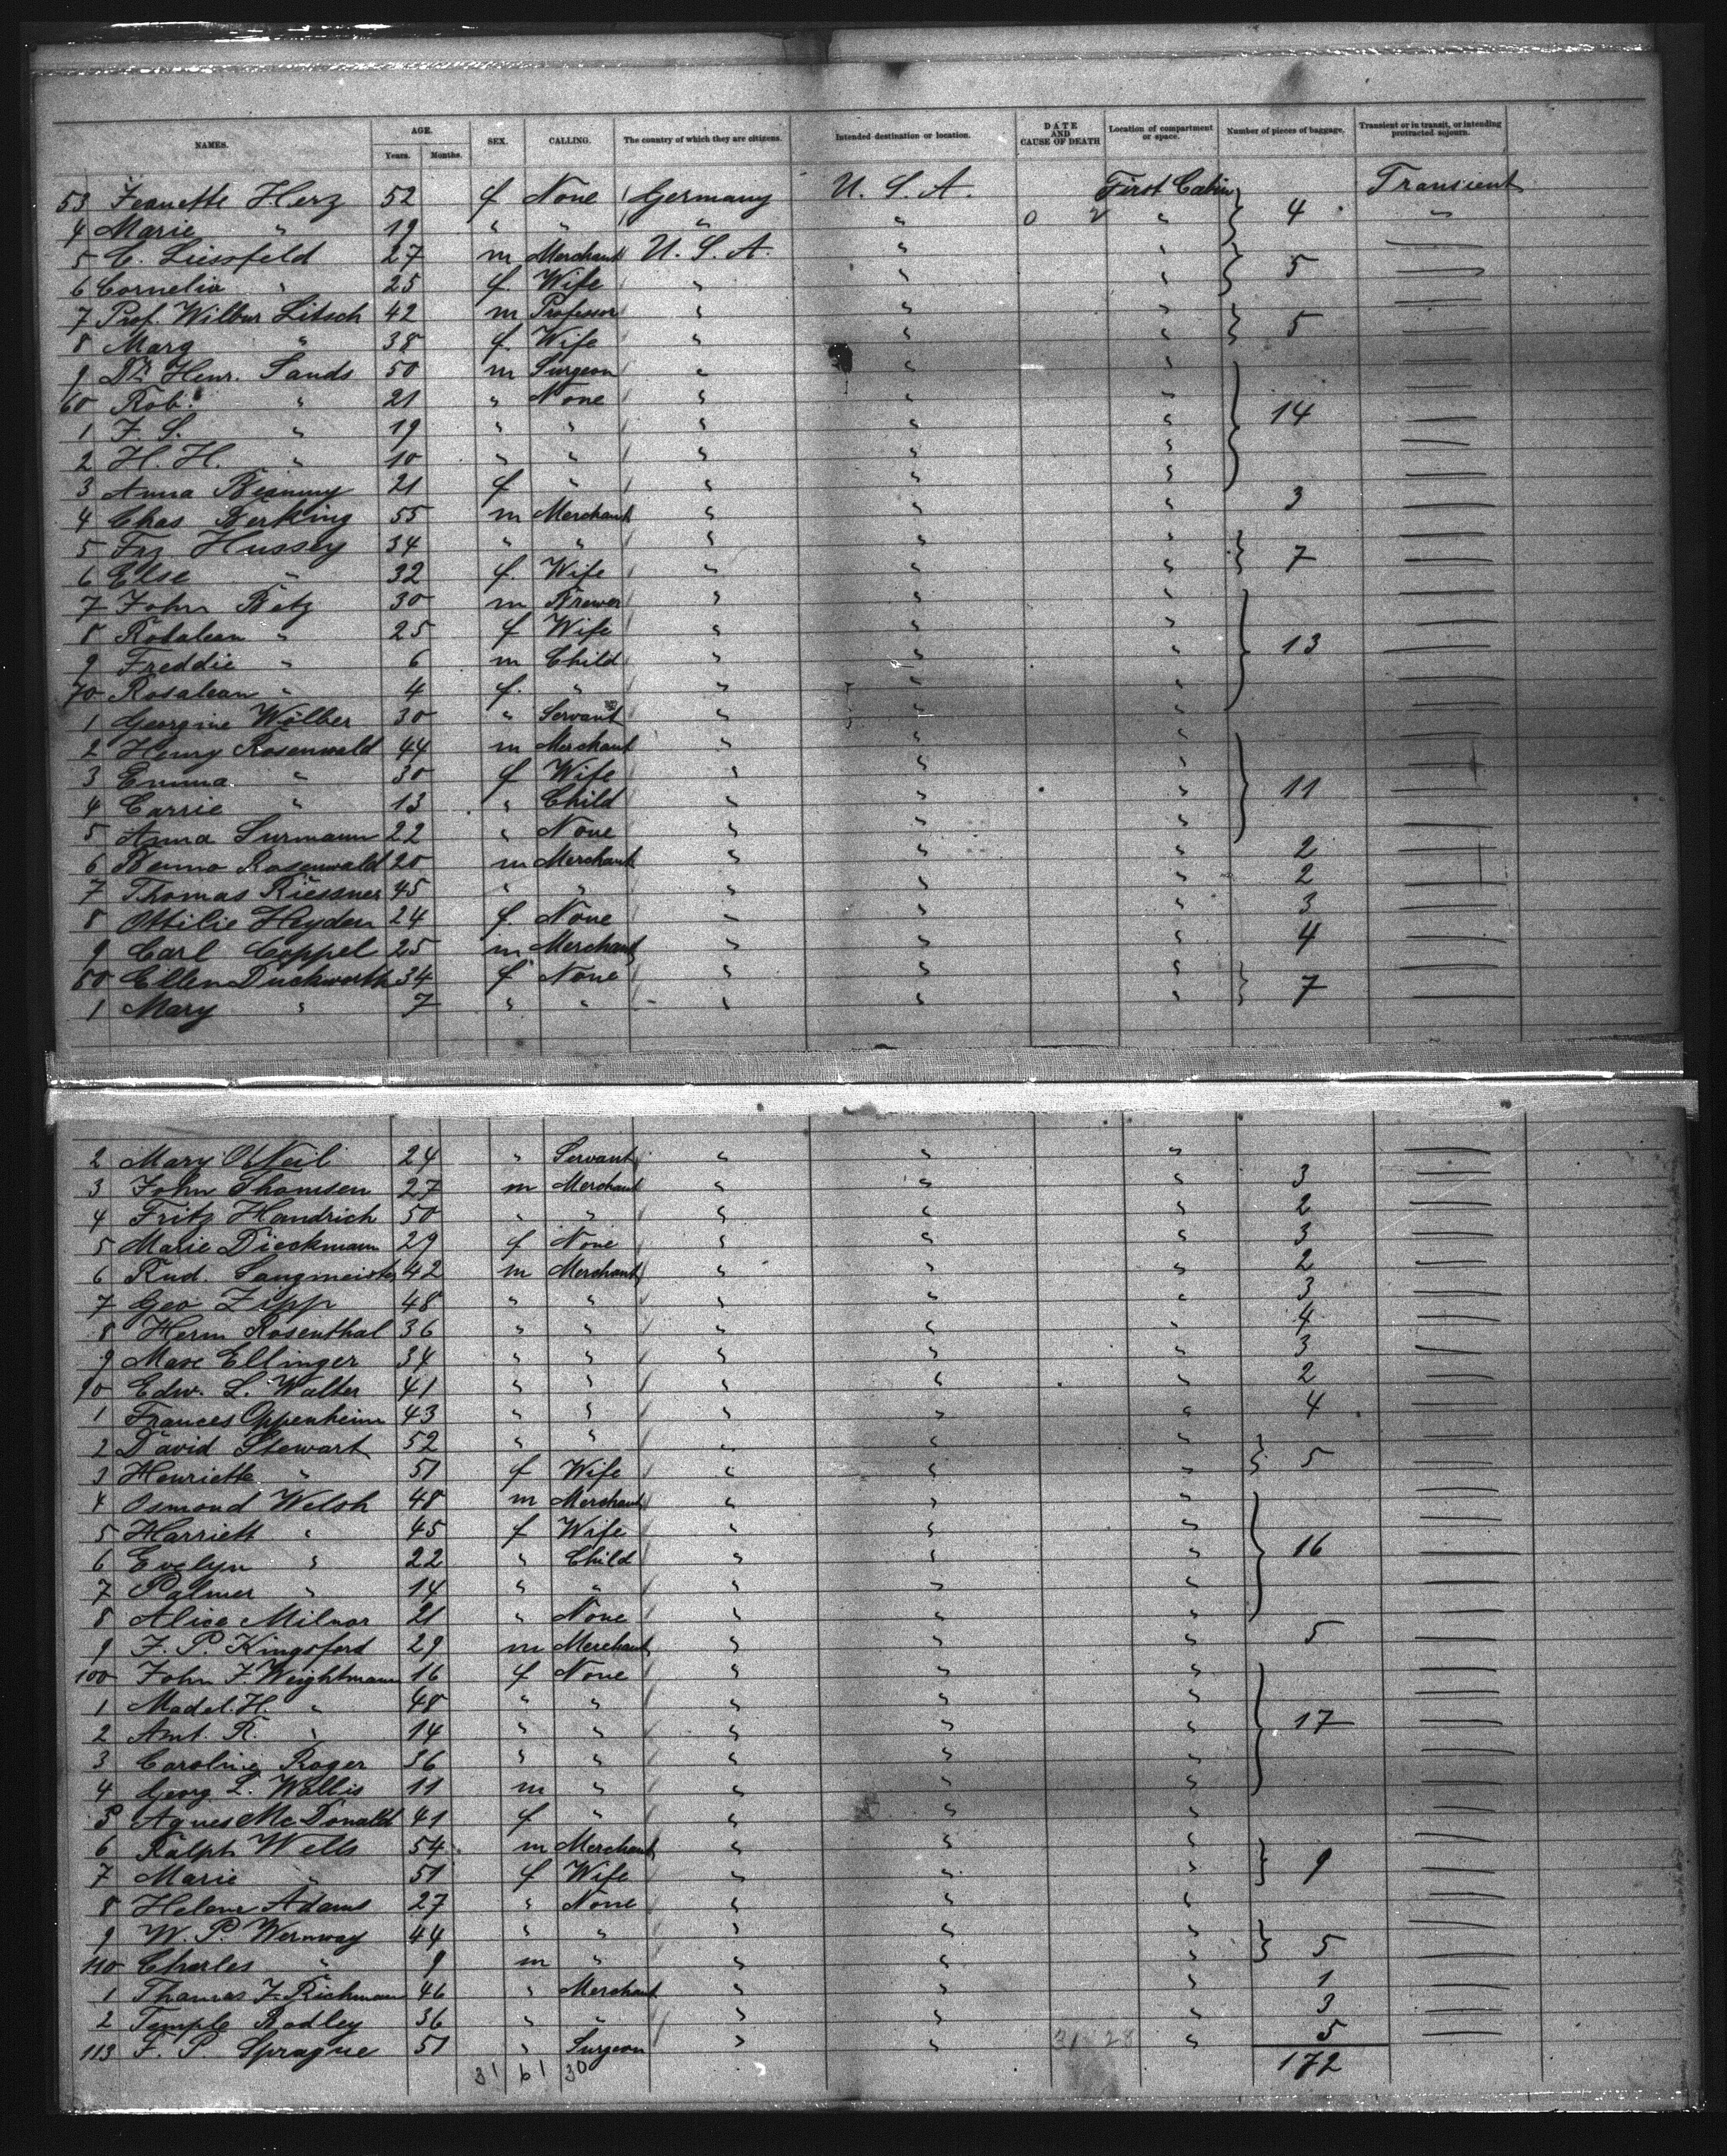 NAMES. AGE. SEX. CALLING. The country of which they are citizens. Intended destination or location. DATE AND CAUSE OF DEATH Location of compartment or space. Number of pieces of baggage. Transient or in transit, or intending protracted sojourn.
Years. Months.
53 Jeanette Herz 52 f None Germany U. S. A. First Cabin 4 Transient
4 Marie " 19 " " " " 0 2 " "
5 C. Liessfeld 27 m Merchant U. S. A. " " 5
6 Cornelia " 25 f. Wife " " "
7 Prof. Wilbur Litsch 42 m Professor " " " 5
8 Marg " 38 f. Wife " " "
9 Dr. Henr. Sands 50 m Surgeon " " " 14
60 Rob. " 21 " None " " "
1 F. S. " 19 " " " " "
2 H. H. " 10 " " " " "
3 Anna 21 f " " " "
4 Chas Berking 55 m Merchant " " " 3
5 Frz. Hussey 34 " " " " " 7
6 Else " 32 f. Wife " " "
7 John Betz 30 m Brewer " " " 13
8 Rosalean " 25 f Wife " " "
9 Freddie " 6 m Child " " "
70 Rosalean " 4 f. " " " "
1 Georgine Wölber 30 " Servant " " "
2 Henry Rosenwald 44 m Merchant " " " 11
3 Emma " 30 f Wife " " "
4 Carrie " 13 " Child " " "
5 Anna Surmann 22 " None " " "
6 Benno Rosenwald 20 m Merchant " " " 2
7 Thomas Riessner 45 " " " " " 2
8 Ottilie Heyden 24 f. None " " " 3
9 Carl Coppel 25 m Merchant " " " 4
80 Ellen Duckworth 34 f None " " " 7
1 Mary " 7 " " " " "
2 Mary O'Neil 24 " Servant " " "
3 John Thomsen 27 m Merchant " " " 3
4 Fritz Handrich 50 " " " " " 2
5 Marie Dieckmann 29 f None " " " 3
6 Rud. Langmeister 42 m Merchant " " " 2
7 Geo Zipp 48 " " " " " 3
8 Herm Rosenthal 36 " " " " " 4
9 Max Ellinger 34 " " " " " 3
90 Edw. L. Walter 41 " " " " " 2
1 Frances Oppenheim 43 " " " " " 4
2 David Stewart 52 " " " " " 5
3 Henriette " 51 f Wife " " "
4 Osmond Welsh 48 m Merchant " " " 16
5 Harriett " 45 f Wife " " "
6 Evelyn " 22 " Child " " "
7 Palmer " 14 " " " " "
8 Alice Milnor 21 " None " " "
9 F. P. Kingsford 29 m Merchant " " " 5
100 John F. Weightmann 16 f None " " " 17
1 Madel. H. " 48 " " " " "
2 Ant. R. " 14 " " " " "
3 Caroline Roger 36 " " " " "
4 Georg L. Wallis 11 m " " " "
5 Agnes Mc Donald 41 f " " " "
6 Ralph Wells 54 m Merchant " " " 9
7 Marie " 51 f Wife " " "
8 Helene Adams 27 " None " " "
9 W. P. Wernway 44 " " " " " 5
110 Charles " 9 m " " " "
1 Thomas F. Richmann 46 " Merchant " " " 1
2 Temple Radley 36 " " " " " 3
113 F. P. Sprague 51 " Surgeon " " 31 28 " 5
31 61 30 172